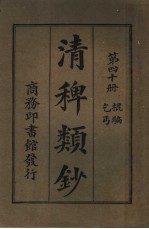 第四十册
棍騙
乞丐
清稗類鈔
商務印書館發行